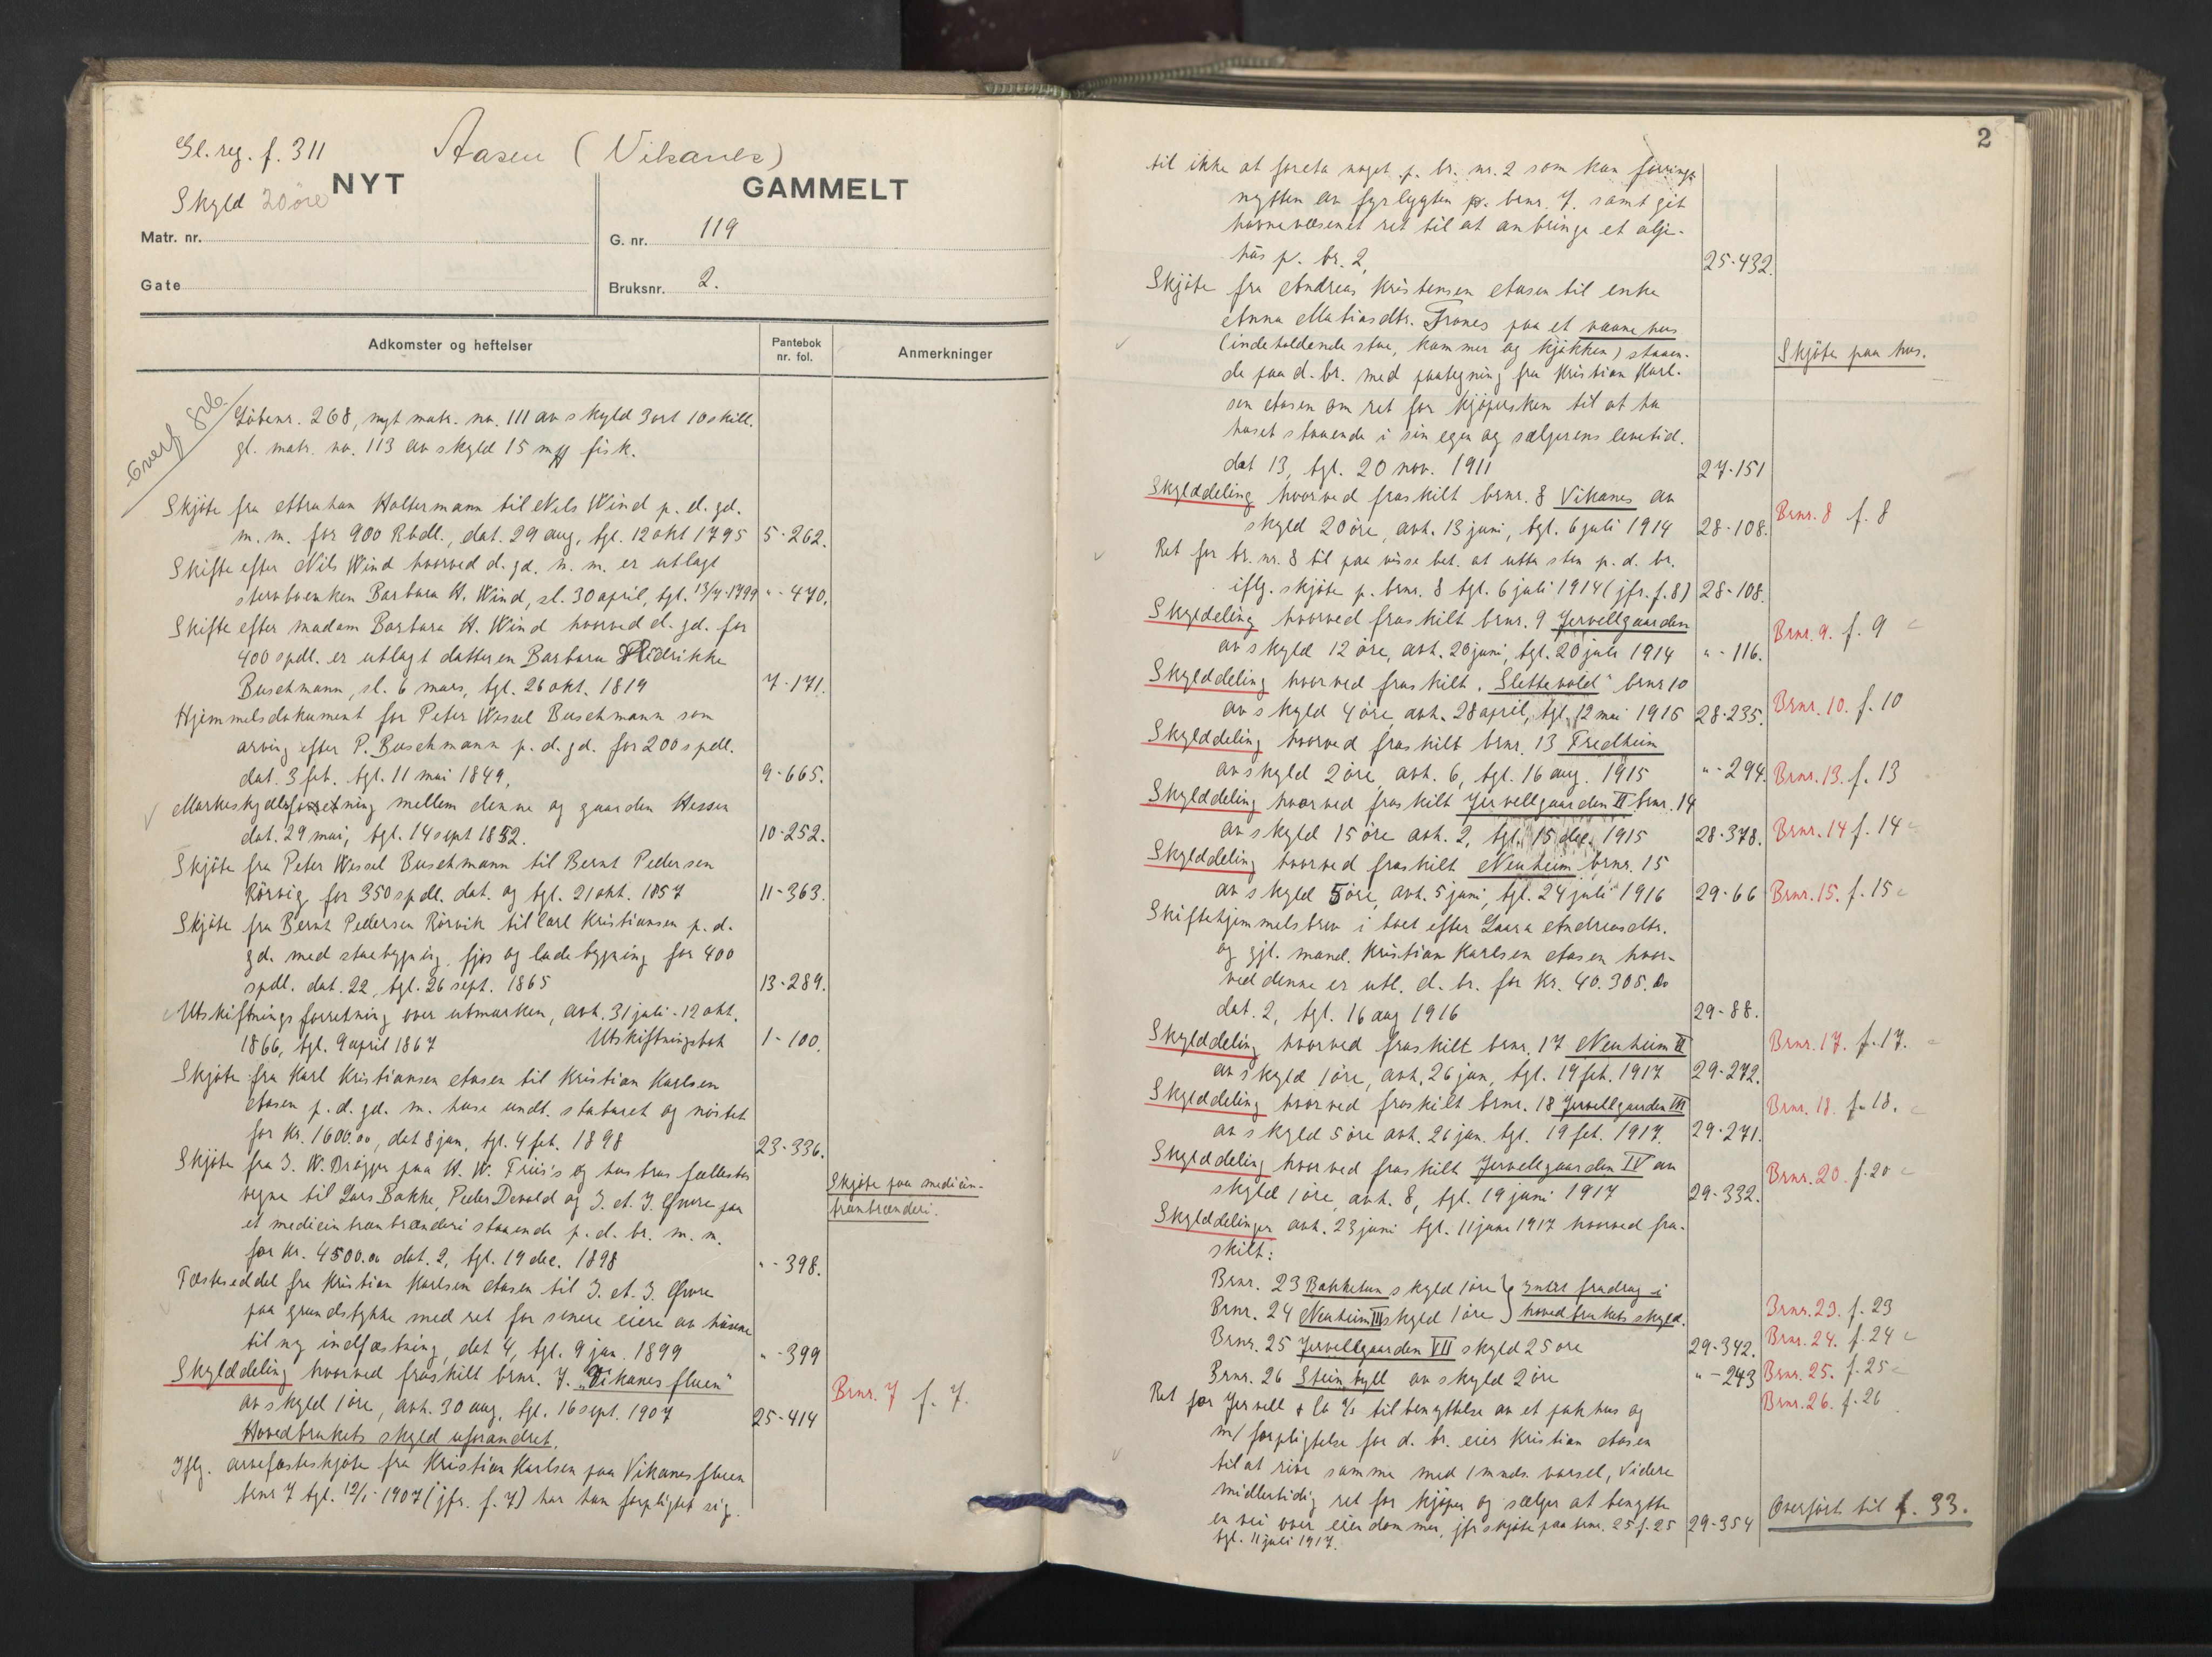 Gl. reg. f. 311
Aasen (Vikanes)
Skyld 20 öre
NYT
GAMMELT
Matr. nr.
G. nr. 119
Gate
Bruksnr. 2.
Adkomster og heftelser
Pantebok nr. fol.
Anmerkninger
Löbenr. 268, nyt matr. no. 111 av skyld 3 ort 10 skill.
gl. matr. no. 113 av skyld 15 mk fisk.
Skjöte fra Abraham Holtermann til Nels Wind p. d. gd.
m. m. for 900 Rbdl., dat. 29 aug, tgl. 12 okt 1795 5-262.
Skifte efter Nils Wind hvorved d. gd. m. m. er utlagt
stervboenken Barbara H. Wind, sl. 30 april, tgl. 13/7-1799 "-470.
Skifte efter madam Barbara H. Wind hvorved d. gd. for
400 spdl. er utlagt datteren Barbara Hedrikke
Buschmann, sl. 6 mars, tgl. 26 okt. 1819 7-171.
Hjemmelsdokument for Peter Wessel Buschmann som
arving efter P. Buschmann p. d. gd. for 200 spdl.
dat. 3 feb. tgl. 11 mai 1849, 9-665.
Markeskjellsforretning mellem denne og gaarden Hessen
dat. 29 mai, tgl. 14 sept 1852. 10-252.
Skjöte fra Peter Wessel Buschmann til Bernt Pedersen
Rörvig for 350 spdl. dat. og tgl. 21 okt. 1857 11-363.
Skjöte fra Bernt Pedersen Rörvik til Carl Kristiansen p. d.
gd. med stuebygning, fjös og ladebygning for 400
spdl. dat. 22, tgl. 26 sept. 1865 13-289.
Utskiftningsforretning over utmarken, avh. 31 juli - 12 okt.
1866, tgl. 9 april 1867 Utskiftningsbok 1-100.
Skjöte fra Karl Kristiansen Aasen til Kristian Karlsen
Aasen p. d. gd. m. huse undt. staburet og nöstet
for kr. 1600.00, dat 8 jan, tgl. 4 feb. 1898 23-336.
Skjöte fra I. W. Brögger paa H. W. Friis's og hustrus fællesbos
vegne til Lars Bakke, Peder Devold og I. A. I. Owre paa
et medicintranbrænderi staaende p. d. br. m. m.
for kr. 4500.00 dat. 2, tgl. 19 dec. 1898 "-398.
Skjöte paa medicin-
tranbrænderi.
Fæsteseddel fra Kristian Karlsen Aasen til I. A. I. Owre
paa grundstykke med ret for senere eiere av husene
til ny indfæstning, dat 4, tgl. 9 jan. 1899 "-399
Skylddeling hvorved fraskilt brnr. 7. "Vikanesfluen"
av skyld 1 öre, avh. 30 aug, tgl. 16 sept. 1907 25-414 Brnr. 7 f. 7.
Hovedbrukets skyld uforandret.
Iflg. arvefæsteskjöte fra Kristian Karlsen paa Vikanesfluen
brnr 7 tgl. 12/1-1907 (jfr. f. 7) har han forpligtet sig
2
til ikke at foreta noget p. br. nr. 2 som kan forringe
nytten av fyrlygten p. brnr. 7. samt git
havnevæsenet ret til at anbringe et olje-
hus p. br. 2, 25-432.
Skjöte fra Andreas Kristensen Aasen til enke
Anna Matiasdtr. Frones paa et vaanehus
(indeholdende stue, kammer og kjökken) staaen-
de paa d. br. med paategning fra Kristian Karl-
sen Aasen om ret for kjöpersken til at ha
huset staaende i sin egen og sælgerens levetid.
dat 13, tgl. 20 nov. 1911 27-151
Skjöte paa hus.
Skylddeling hvorved fraskilt brnr. 8 Vikanes av
skyld 20 öre, avh. 13 juni, tgl. 6 juli 1914 28-108. Brnr. 8 f. 8
Ret for br. nr. 8 til paa visse bet. at utta sten p. d. br.
iflg. skjöte p. brnr. 8 tgl. 6 juli 1914 (jfr. f. 8) 28-108.
Skylddeling hvorved fraskilt brnr. 9 Jervellgaarden
av skyld 12 öre, avh. 20 juni, tgl. 20 juli 1914 "-116. Brnr. 9. f. 9
Skylddeling hvorved fraskilt "Slettevold" brnr 10
av skyld 4 öre, avh. 28 april, tgl. 12 mai 1915 28-235. Brnr. 10. f. 10
Skylddeling hvorved fraskilt brnr. 13 Fredheim
av skyld 2 öre, avh. 6, tgl. 16 aug. 1915 "-294. Brnr. 13. f. 13
Skylddeling hvorved fraskilt Jervellgaarden II brnr. 14
av skyld 15 öre avh. 2, tgl. 15 dec. 1915 28-378. Brnr. 14 f. 14
Skylddeling hvorved fraskilt Neuheim brnr. 15
av skyld 5 öre, avh. 5 juni, tgl. 24 juli 1916 29-66 Brnr. 15. f. 15
Skiftehjemmelsbrev i boet efter Laura Andreasdtr.
og gjl. mand. Kristian Karlsen Aasen hvor-
ved denne er utl. d. br. for kr. 40.305.00
dat. 2, tgl. 16 aug 1916 29-88.
Skylddeling hvorved fraskilt brnr. 17 Neuheim II
av skyld 1 öre, avh. 26 jan, tgl. 19 feb. 1917 29-272. Brnr. 17. f. 17.
Skylddeling hvorved fraskilt brnr. 18 Jervellgaarden III
av skyld 5 öre avh. 26 jan. tgl. 19 feb. 1917. 29-271. Brnr. 18. f. 18.
Skylddeling hvorved fraskilt Jervellgaarden IV av
skyld 1 öre, avh. 8, tgl. 19 juni 1917 29-332. Brnr. 20. f. 20
Skylddelinger avh. 23 juni tgl. 11 juni 1917 hvorved fra-
skilt:
Brnr. 23 Bakketun skyld 1 öre } Intet fradrag i
Brnr. 24 Neuheim III skyld 1 öre } hovedbrukets skyld. Brnr. 23. f. 23
Brnr. 25 Jervellgaarden VII skyld 25 öre 29-342. Brnr. 24. f. 24
Brnr. 26 Steinbyll av skyld 2 öre "-243 Brnr. 25. f. 25
Brnr. 26. f. 26
Ret for Jervell & Co A/s til benyttelse av et pakhus og
m/ forpligtelse for d. br. eier Kristian Aasen
til at rive samme med 1 mnds. varsel, Videre
midlertidig ret for kjöper og sælger at benytte
en vei over eiendommen, jfr skjöte paa brnr. 25 f. 25 29-354
tgl. 11 juli 1917.
Overfört til f. 33.